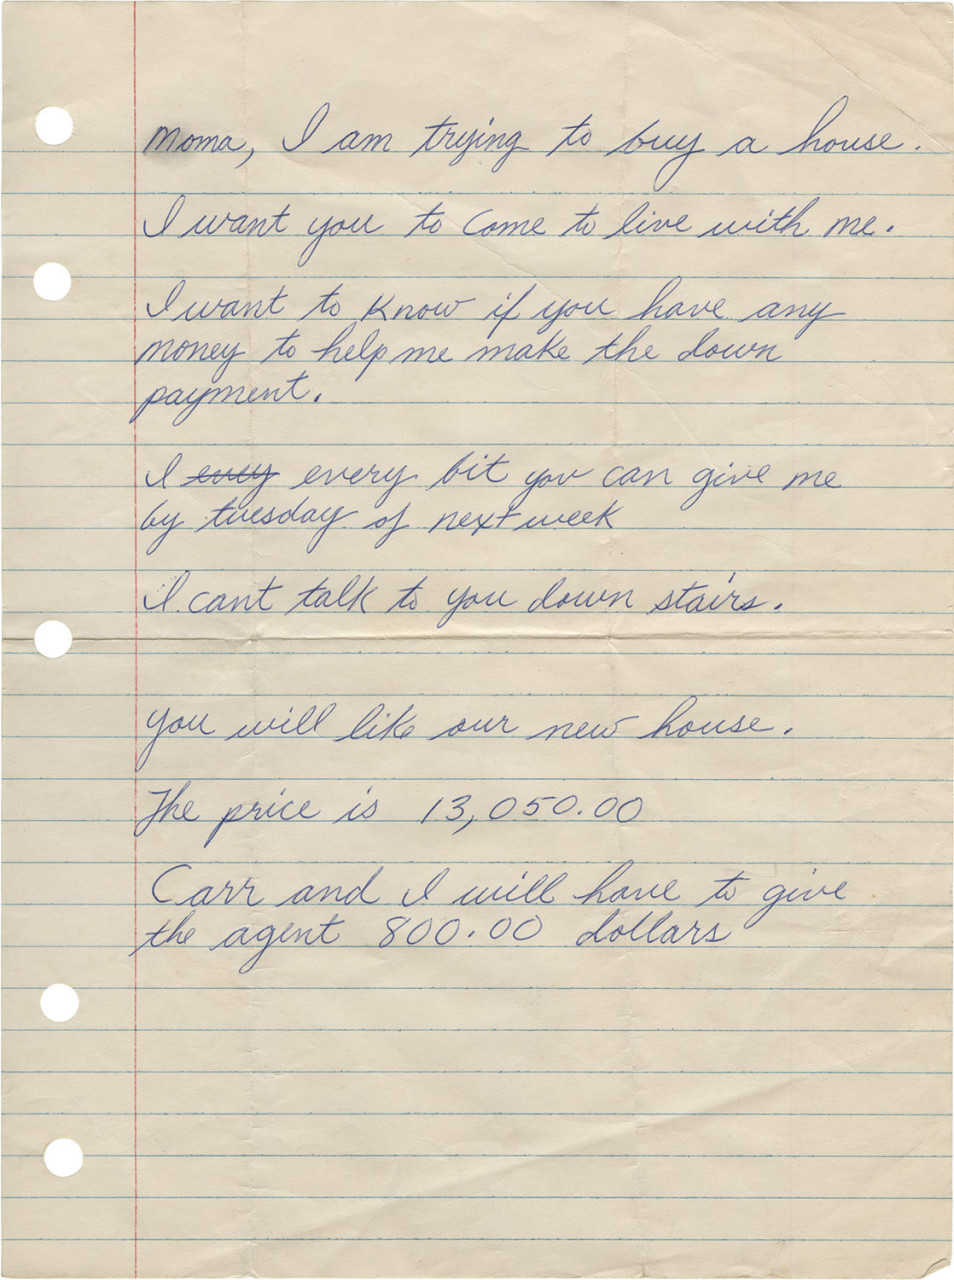 Moma, I am trying to buy a house.
I want you to come to live with me.
I want to know if you have any
money to help me make the down
payment.
I evey every bit you can give me
by tuesday of next week
I cant talk to you down stairs.
you will like our new house.
The price is 13,050.00
Carr and I will have to give
the agent 800.00 dollars